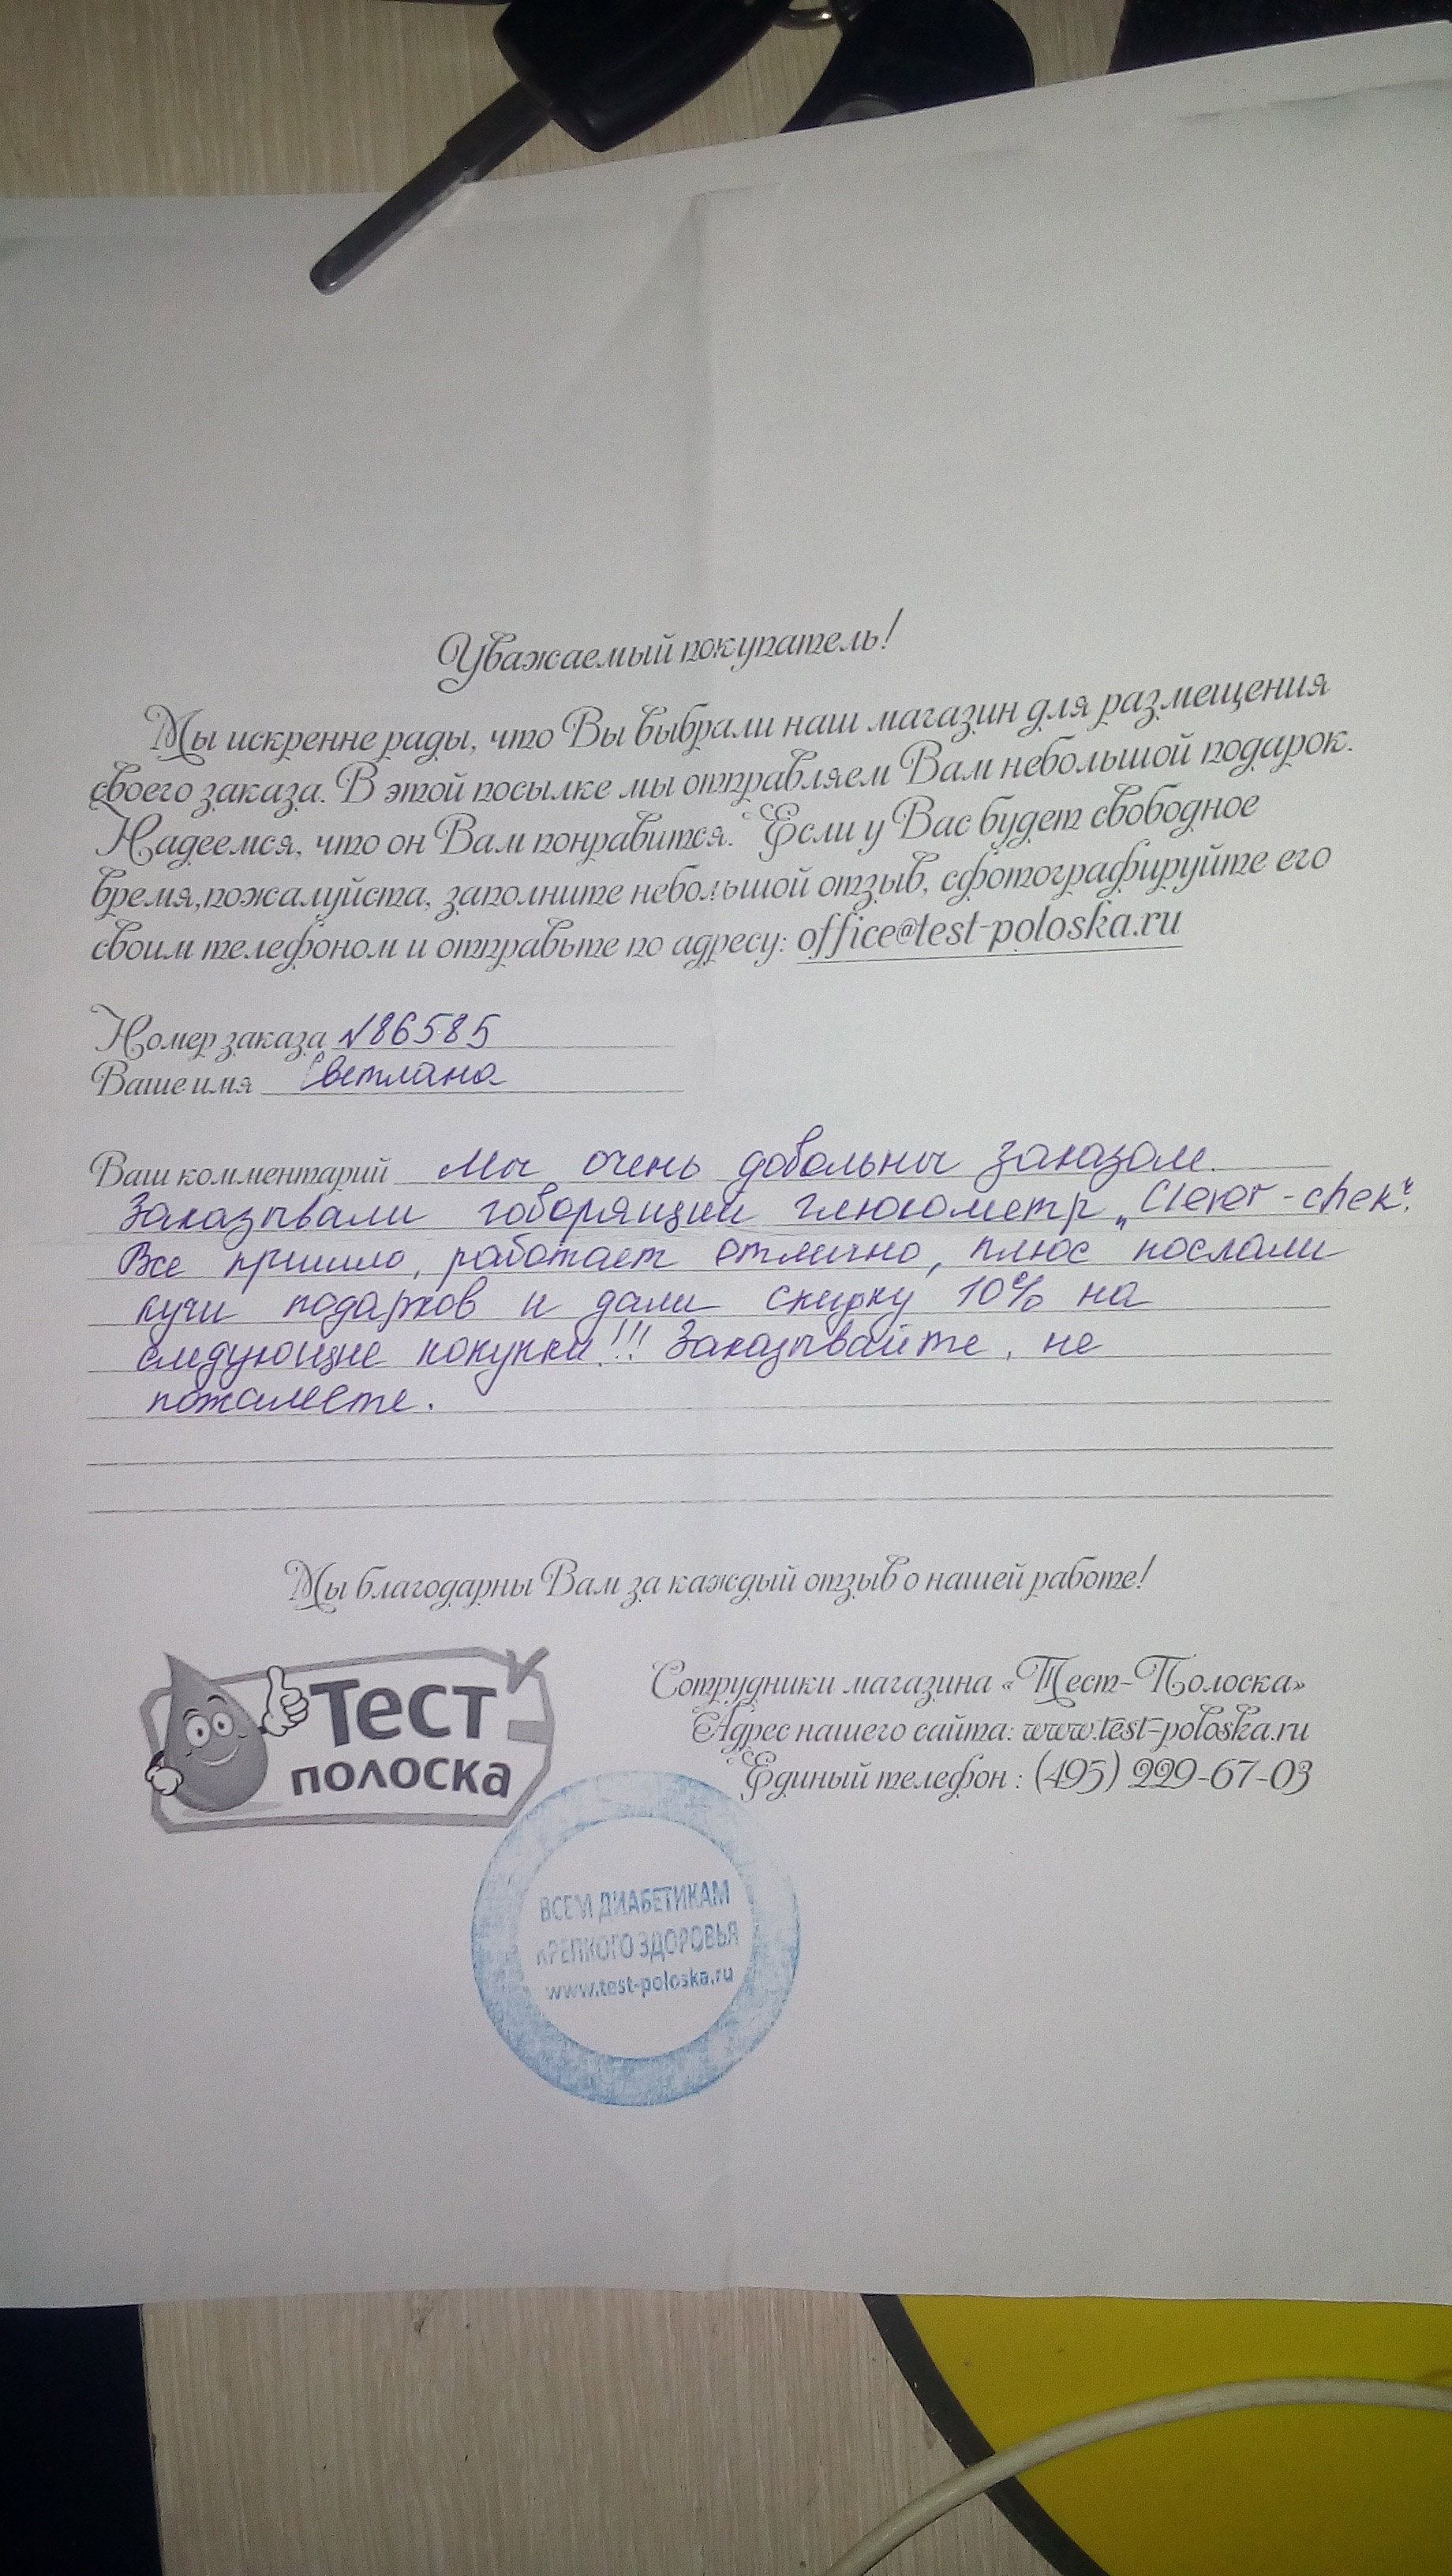 Уважаемый покупатель!
Мы искренне рады, что Вы выбрали наш магазин для размещения
своего заказа. В этой посылке мы отправляем Вам небольшой подарок.
Надеемся, что он Вам понравится. Если у Вас будет свободное
время,пожалуйста, заполните небольшой отзыв, сфотографируйте его
своим телефоном и отправьте по адресу: office@test-poloska.ru
Номер заказа №86585
Ваше имя Светлана
Ваш комментарий Мы очень довольны заказом.
Заказывали говорящий глюкометр „Clever-chek“.
Все пришло, работает отлично, плюс послали
кучи подарков и дали скидку 10% на
следующие покупки!!! Заказывайте, не
пожалеете.
Мы благодарны Вам за каждый отзыв о нашей работе!
Тест
полоска
Сотрудники магазина «Тест-Полоска»
Адрес нашего сайта: www.test-poloska.ru
Единый телефон : (495) 229-67-03
ВСЕМ ДИАБЕТИКАМ
КРЕПКОГО ЗДОРОВЬЯ
www.test-poloska.ru